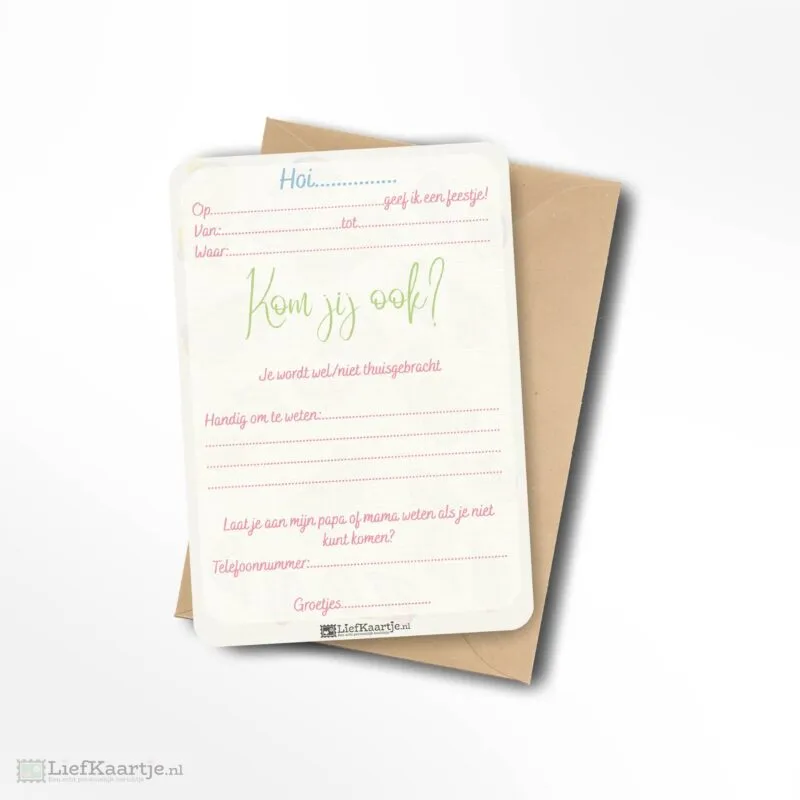 Hoi...............
Op.......................................geef ik een feestje!
Van:...........................tot..............................
Waar:...........................................................
Kom jij ook?
Je wordt wel/niet thuisgebracht
Handig om te weten:........................................
....................................................................
....................................................................
....................................................................
Laat je aan mijn papa of mama weten als je niet
kunt komen?
Telefoonnummer:.............................................
Groetjes....................
LiefKaartje.nl
Een echt persoonlijk kaartje
LiefKaartje.nl